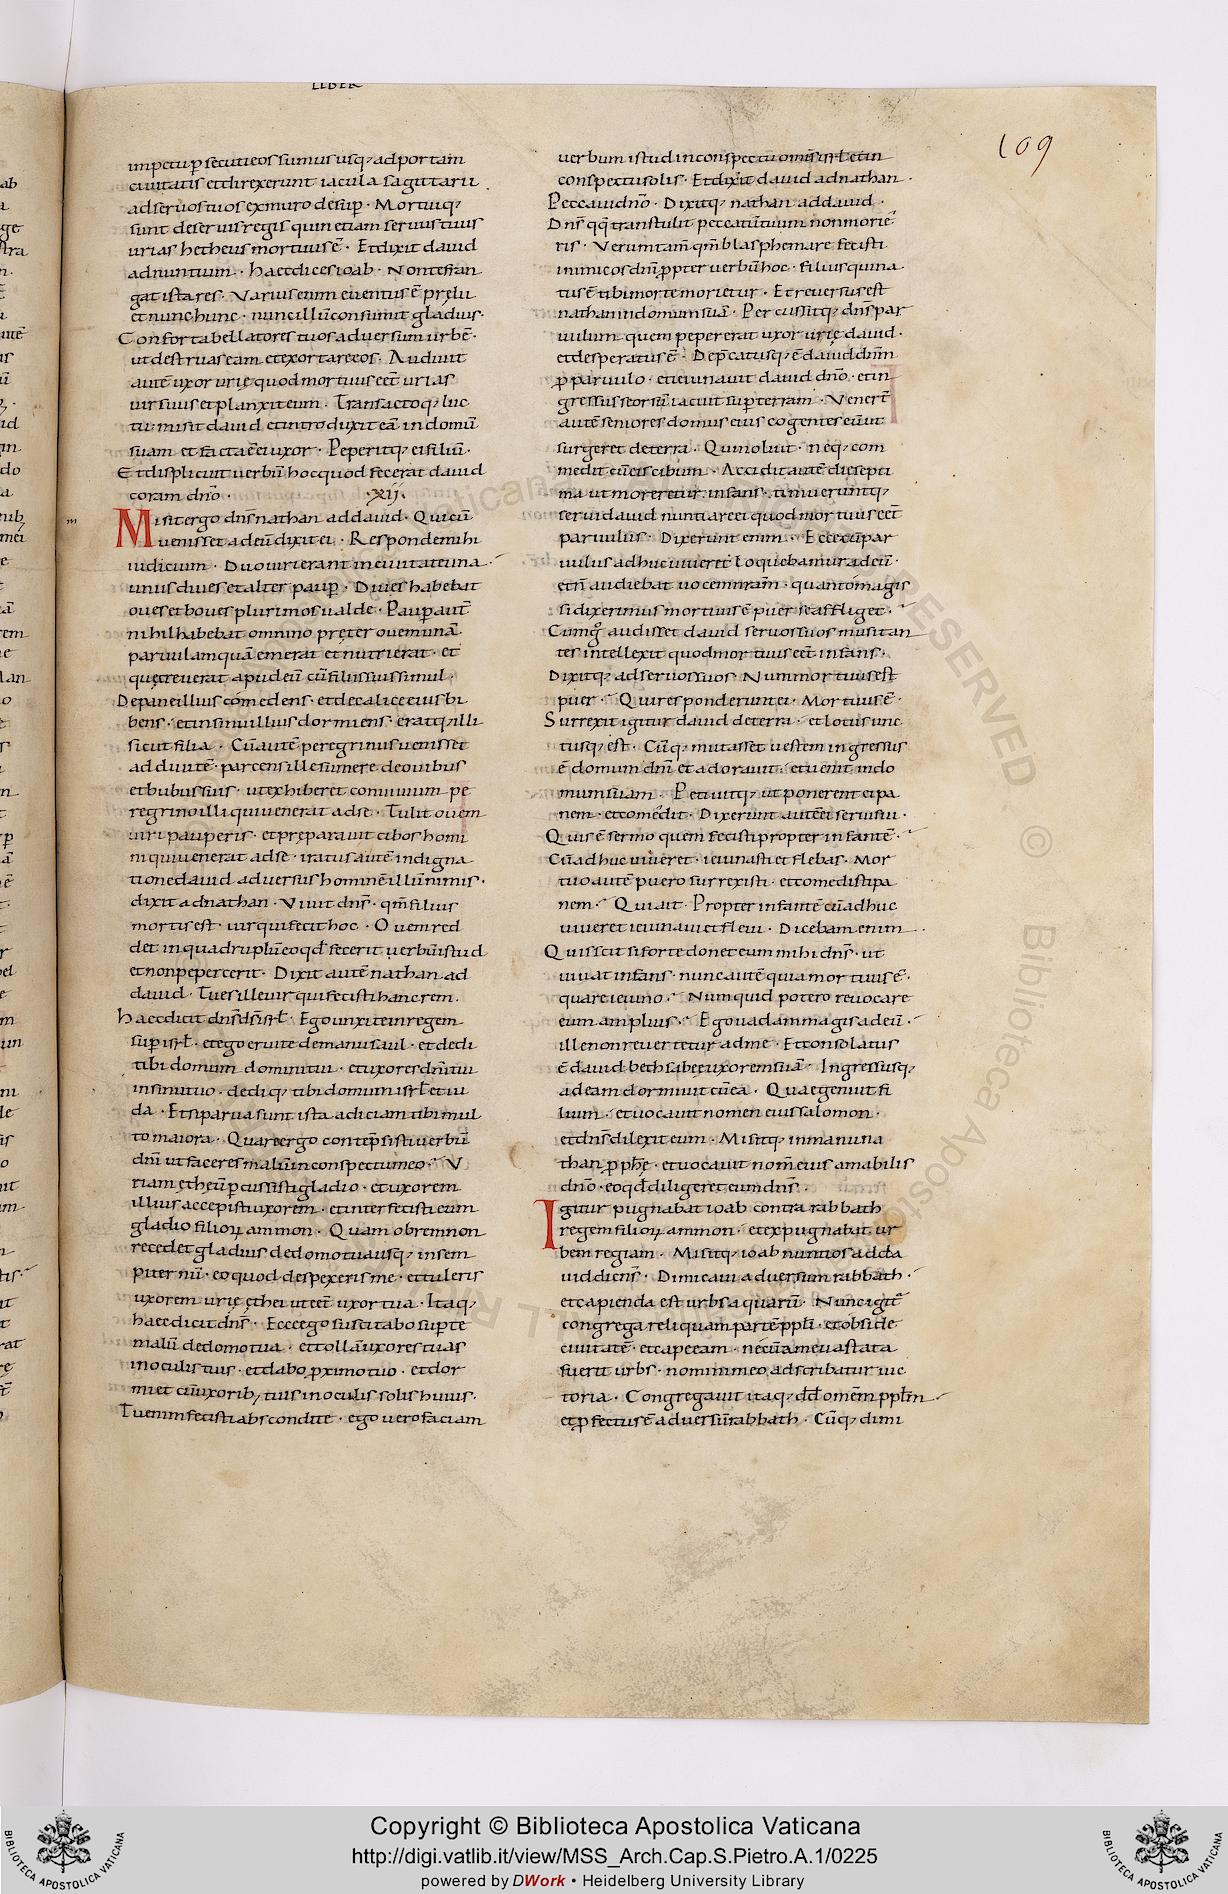 LIBER
109
impetu ꝑsecuti eos sumus usq; ad portam
ciuitatis et direxerunt iacula sagittarii
ad seruos tuos ex muro desup̱ · Mortuiq;
sunt de seruis regis quin etiam seruus tuus
urias hetheus mortuus ē · Et dixit dauid
ad nuntium · haec dices ioab · Non te fran
gat ista res · Varius enim euentus ē pręlii
et nunc hunc · nunc illū consumit gladius ·
Confortabellatores tuos aduersum urbē ·
ut destruas eam et exortare eos · Audiuit
autē uxor urię quod mortuus eēt urias
uir suus et planxit eum · Transactoq; luc
tu misit dauid et introduxit eā in domū
suam et facta ē ei uxor · Peperitq; ei filiū ·
Et displicuit uerbū hoc quod fecerat dauid
coram dn̄o · ·xij·
Misit ergo dn̄s nathan ad dauid · Qui cū
uenisset ad eū dixit ei · Responde mihi
iudicium · Duo uiri erant in ciuitate una ·
unus diues et alter paup̱ · Diues habebat
oues et boues plurimos ualde · Paup̱ aut̄
nihil habebat omnino pręter ouem unā ·
paruulam quā emerat et nutrierat · et
quę creuerat apud eū cū filiis suis simul ·
De pane illius comedens · et de calice eius bi
bens · et in sinu illius dormiens · eratq; illi
sicut filia · Cū autē peregrinus uenisset
ad diuitē · parcens ille sumere de ouibus
et bubus suis · ut exhiberet conuiuium pe
regrino illi qui uenerat ad se · Tulit ouem
uiri pauperis · et preparauit cibos homi
ni qui uenerat ad se · iratus autē indigna
tione dauid aduersus hominē illū nimis ·
dixit ad nathan · Viuit dn̄s · qm̄ filius
mortis est · uir qui fecit hoc · Ouem red
det in quadruplū eo qđ fecerit uerbū istud
et non pepercerit · Dixit autē nathan ad
dauid · Tu es ille uir qui fecisti hanc rem ·
Haec dicit dn̄s d̄s isrł · Ego unxi te in regem
sup̱ isrł · et ego erui te de manu saul · et dedi
tibi domum domini tui · et uxores dn̄i tui
in sinu tuo · dediq; tibi domum isrł et iu
da · Et si parua sunt ista adiciam tibi mul
to maiora · Quare ergo contēpsisti uerbū
dn̄i ut faceres malū in conspectu meo · V
riam ętheū ꝑcussisti gladio · et uxorem
illius accepisti uxorem · et interfecisti eum
gladio filioꝝ ammon · Quam ob rem non
recedet gladius de domo tua usq; in sem
piternū · eo quod despexeris me · et tuleris
uxorem urię ęthei ut eēt uxor tua · Itaq;
haec dicit dn̄s · Ecce ego suscitabo sup̱ te
malū de domo tua · et tollā uxores tuas
in oculis tuis · et dabo ꝓximo tuo · et dor
miet cū uxorib; tuis in oculis solis huius ·
Tu enim fecisti abscondite · ego uero faciam
uerbum istud in conspectu omīs isrł et in
conspectu solis · Et dixit dauid ad nathan ·
Peccaui dn̄o · Dixitq; nathan ad dauid ·
Dn̄s qq̄ transtulit peccatū tuum non morie
ris · Verumtam̄ qm̄ blasphemare fecisti
inimicos dn̄i ꝓpter uerbū hoc · filius qui na
tus ē tibi morte morietur · Et reuersus est
nathan in domum suā · Percussitq; dn̄s par
uulum quem pepererat uxor urię dauid ·
et desperatus ē · Dep̄catusq; ē dauid dn̄m
ꝓ paruulo · et ieiunauit dauid dn̄o · et in
gressus seorsū iacuit sup̱ terram · Venerūt
autē seniores domus eius cogentes eū ut
surgeret de terra · Qui noluit · neq; com
medit cū eis cibum · Accidit autē die septi
ma ut moreretur infans · timueruntq;
serui dauid nuntiare ei quod mortuus eēt
paruulus · Dixerunt enim · Ecce cū par
uulus adhuc uiueret loquebamur ad eū ·
et n̄ audiebat uocem nr̄am · quanto magis
si dixerimus mortuus ē puer se affliget ·
Cumq; audisset dauid seruos suos musitan
tes intellexit quod mortuus eēt infans ·
Dixitq; ad seruos suos Num mortuus est
puer · Qui responderunt ei · Mortuus ē ·
Surrexit igitur dauid de terra · et lotus unc
tusq; est · Cūq; mutasset uestem ingressus
ē domum dn̄i et adorauit · et uenit in do
mum suam · Petiuitq; ut ponerent ei pa
nem · et comedit · Dixerunt autē ei serui sui ·
Quis ē sermo quem fecisti propter infantē ·
Cū adhuc uiueret · ieiunasti et flebas · Mor
tuo autē puero surrexisti · et comedisti pa
nem · Qui ait · Propter infantē cū adhuc
uiueret ieiunaui et fleui · Dicebam enim ·
Quis scit si forte donet eum mihi dn̄s · ut
uiuat infans · nunc autē quia mortuus ē ·
quare ieiuno · Numquid potero reuocare
eum amplius · Ego uadam magis ad eū ·
ille non reuertetur ad me · Et consolatus
ē dauid bethsabee uxorem suā · Ingressusq;
ad eam dormiuit cū ea · Quae genuit fi
lium · et uocauit nomen eius salomon ·
et dn̄s dilexit eum · Misitq; in manu na
than ꝓphę · et uocauit nom̄ eius amabilis
dn̄o · eo qđ diligeret eum dn̄s ·
Igitur pugnabat ioab contra rabbath
regem filioꝝ ammon · et expugnabat ur
bem regiam · Misitq; ioab nuntios ad da
uid dicens · Dimicaui aduersum rabbath ·
et capienda est urbs aquarū · Nunc igit̄
congrega reliquam partē pp̄li · et obside
ciuitatē · et cape eam · ne cū a me uastata
fuerit urbs · nomini meo adscribatur uic
toria · Congregauit itaq; dd̄ omēm pp̄lm
et ꝓfectus ē aduersū rabbath · Cūq; dimi
Copyright © Biblioteca Apostolica Vaticana
http://digi.vatlib.it/view/MSS_Arch.Cap.S.Pietro.A.1/0225
powered by DWork • Heidelberg University Library